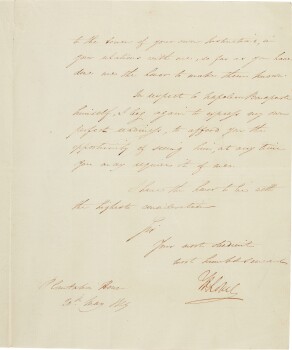 to the tenor of your own Instructions, or
your relations with me, so far as you have
done me the honor to make them known.
In respect to Napoleon Bonaparte
himself, I beg again to express my own
perfect willingness, to afford you the
opportunity of seeing him, at any time
you may require it of me.
I have the honor to be with
the highest consideration
Sir
Your most obedient
most humble servant
H Lowe
Plantation House